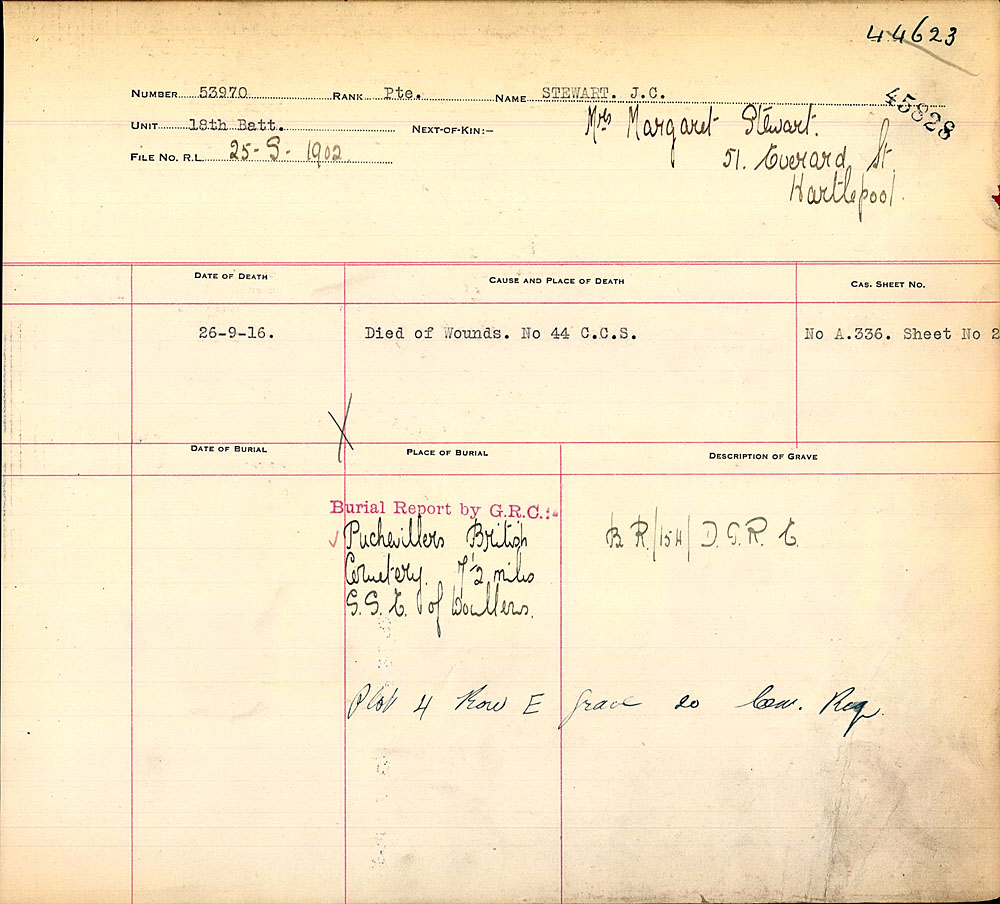 44623
NUMBER 53970 RANK Pte. NAME STEWART. J.C.
45828
UNIT 18th Batt. NEXT-OF-KIN:- Mrs Margaret Stewart.
FILE NO. R.L. 25-S- 1902 51. Everard St
Hartlepool.
DATE OF DEATH CAUSE AND PLACE OF DEATH CAS. SHEET NO.
26-9-16. Died of Wounds. No 44 C.C.S. No A.336. Sheet No 2
DATE OF BURIAL PLACE OF BURIAL DESCRIPTION OF GRAVE
Burial Report by G.R.C.:-
Puchevillers British B.R./154/ D.G.R.E.
Cemetery. 7½ miles
S.S.E. of Doullens.
Plot 4 Row E grave 20 Cem. Reg.